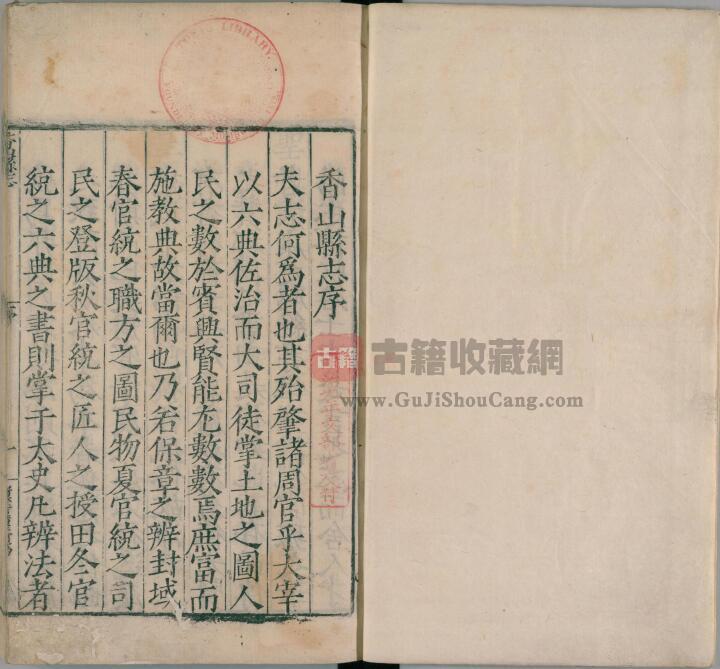 香山縣志序
夫志何爲者也其殆肇諸周官乎大宰
以六典佐治而大司徒掌土地之圖人
民之數於賓興賢能尢數數焉庶富而
施教典故當爾也乃若保章之辨封域
春官統之職方之圖民物夏官統之司
民之登版秋官統之匠人之授田冬官
統之六典之書則掌于太史凡辨法者
序
一
古籍
古籍收藏網
www.GuJiShouCang.com
LIBRARY